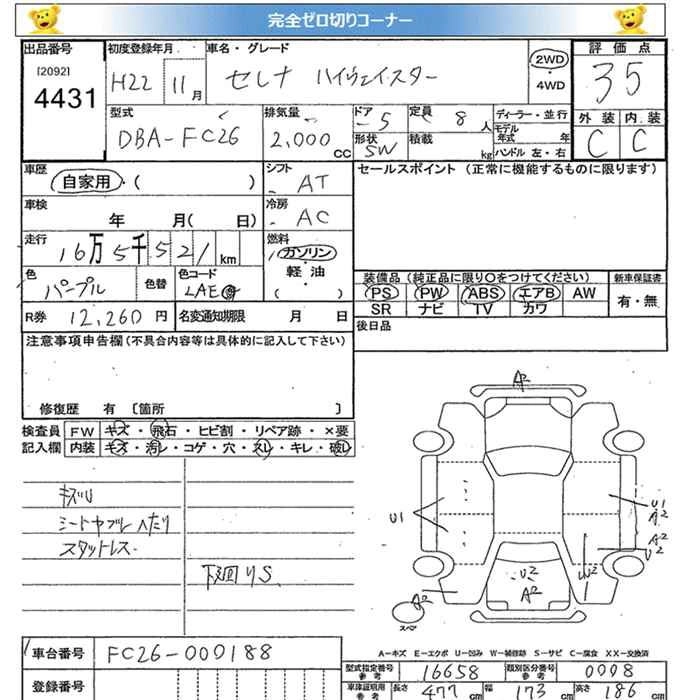 完全ゼロ切りコーナー
出品番号 初度登録年月 車名・グレード 評価点
[2092]
4431
H22 11月 セレナ ハイウェイスター 2WD・4WD 35
型式 排気量 ドア 定員 ディーラー・並行 外装 内装
DBA-FC26 2,000CC 5 8人 モデル年式 年 C C
形状 SW 積載 kg ハンドル 左・右
車歴 シフト セールスポイント (正常に機能するものに限ります)
自家用・( ) AT
車検 冷房
年 月( 日) AC
走行 燃料
16万5千521km ガソリン
軽油
( )
色 パープル 色替 色コード LAE
装備品(純正品に限り○をつけてください) 新車保証書
PS PW ABS エアB AW 有・無
SR ナビ TV カワ
R券 12,260円 名変通知期限 月 日
後日品
注意事項申告欄(不具合内容等は具体的に記入して下さい)
修復歴 有 〔箇所 〕
検査員 FW キズ・飛石・ヒビ割・リペア跡・×要
記入欄 内装 キズ・汚レ・コゲ・穴・スレ・キレ・破レ
キズU
シートヤブレ ヘたり
スタットレス
下廻りS
A2
U1
U1
A2
A2
U2
W2
U2
A2
A2
スペア
A-キズ E-エクボ U-凹み W-補修跡 S-サビ C-腐食 XX-交換済
車台番号 FC26-000188
登録番号
型式指定番号 参考 16658 類別区分番号 参考 0008
車庫証明用 参考 長さ 477cm 幅 173cm 高さ 186cm